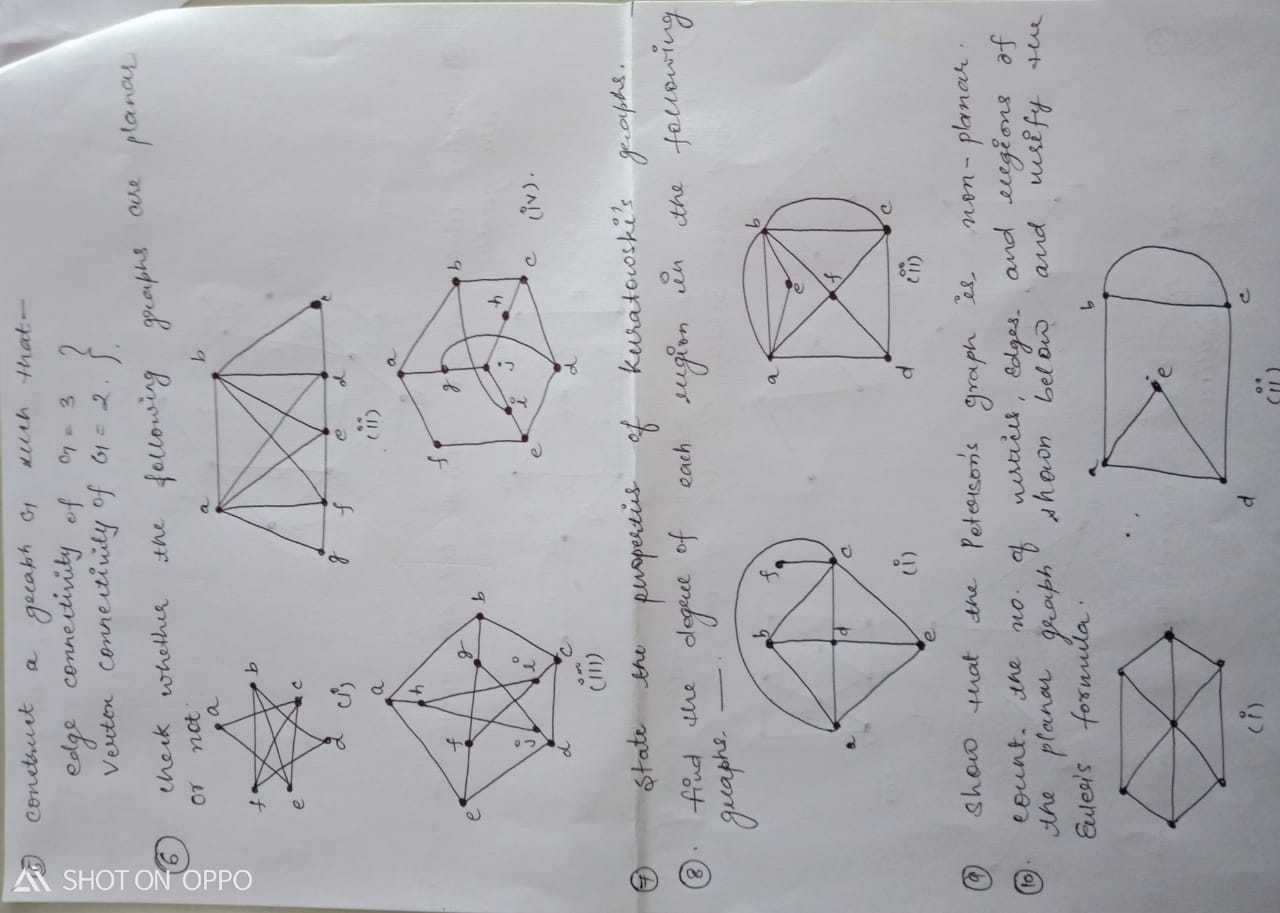 SHOT ON OPPO
⑤ construct a graph G such that—
edge connectivity of G = 3 }
Vertex connectivity of G = 2. }.
⑥ check whether the following graphs are planar
or not.
a
f b
e c
d (i)
a b
g f e d c
(ii)
a
h
e f g b
j i
d c
(iii)
a
f g b
i j h
e c (iv).
d
⑦ State the properties of Kuratowoski's graphs.
⑧. find the degree of each region in the following
graphs. —.
b f
a d c
e (i)
a b
e
f
d c
(ii)
⑨ show that the Peterson's graph is non-planar.
⑩. count. the no. of vertices, edges. and regions of
the planar graph shown below and verify the
Euler's formula.
(i)
a b
e
d c
(ii)